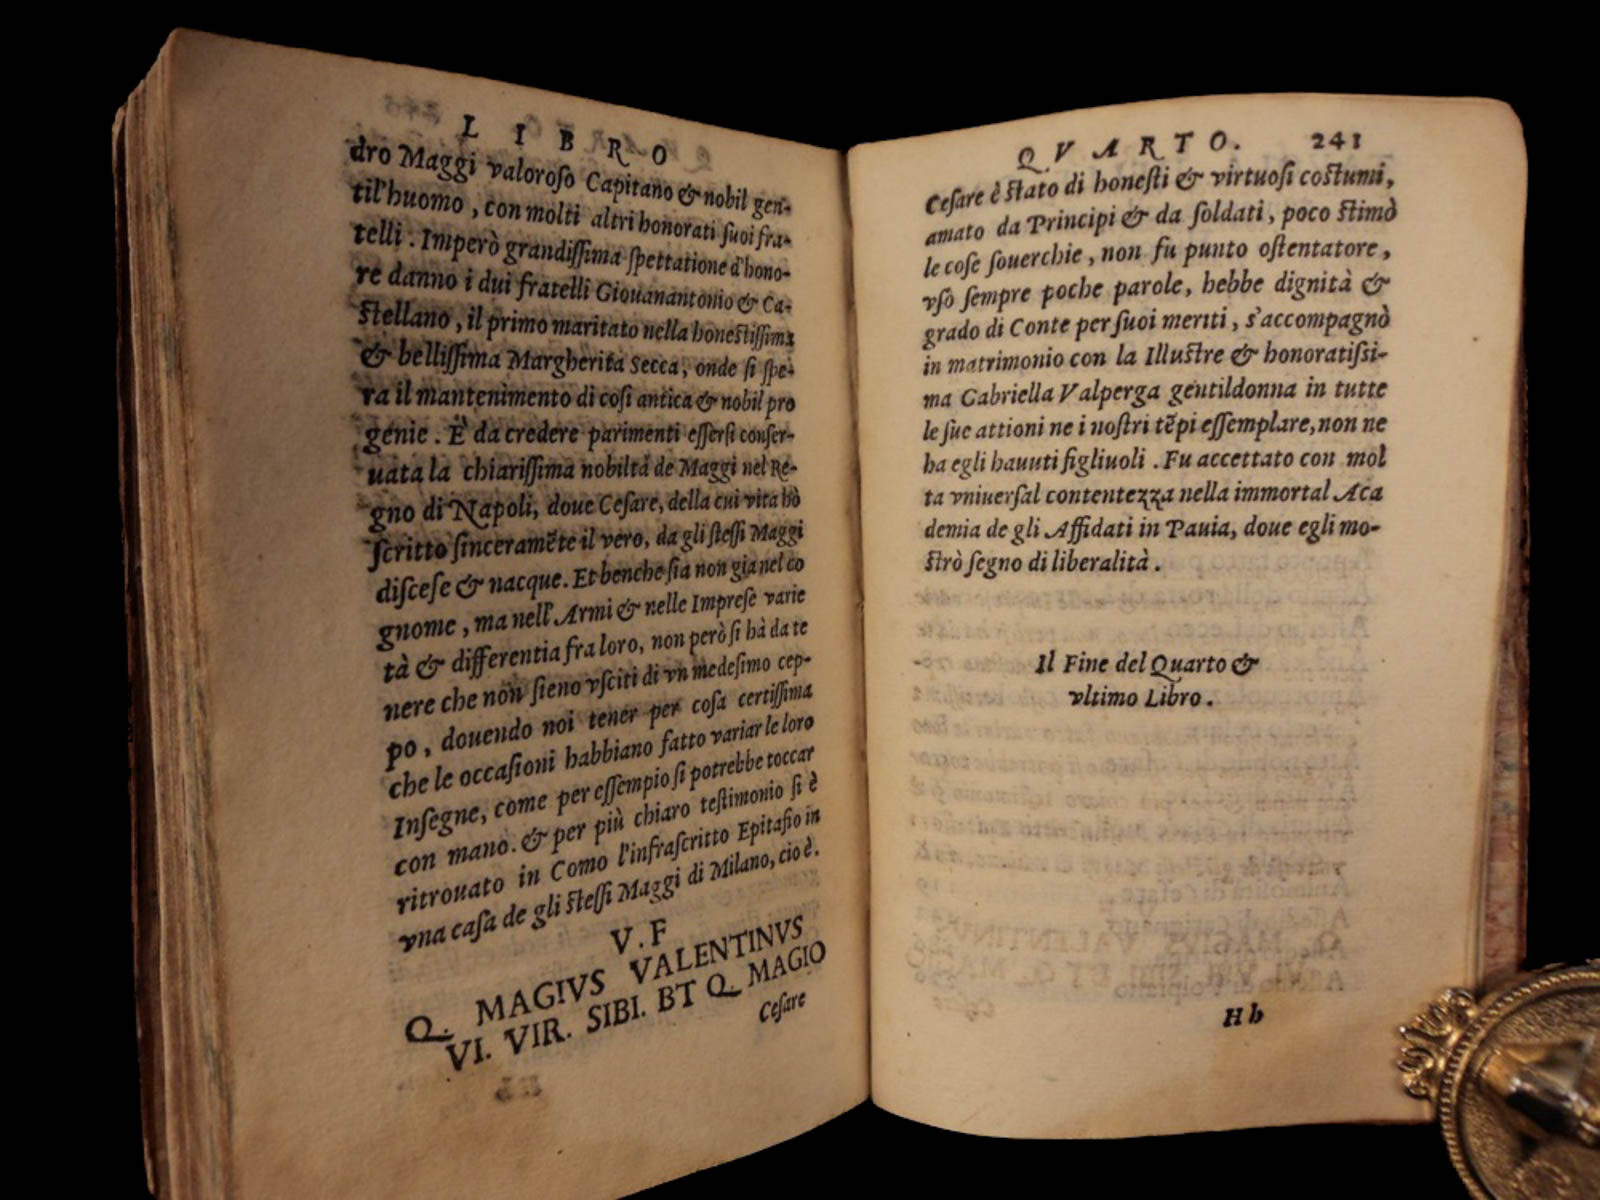 LIBRO
dro Maggi valoroſo Capitano & nobil gen-
til'huomo, con molti altri honorati ſuoi fra-
telli. Imperò grandiſſima ſpettatione d'hono-
re danno i dui fratelli Giouanantonio & Ca-
ſtellano, il primo maritato nella honeſtiſſima
& belliſſima Margherita Secca, onde ſi ſpe-
ra il mantenimento di coſi antica & nobil pro
genie. È da credere parimenti eſſerſi conſer-
uata la chiariſſima nobiltà de Maggi nel Re-
gno di Napoli, doue Ceſare, della cui vita hò
ſcritto ſinceramēte il vero, da gli ſteſſi Maggi
diſceſe & nacque. Et benche ſia non gia nel co
gnome, ma nell'Armi & nelle Impreſe varie
tà & differentia fra loro, non però ſi hà da te
nere che non ſieno vſciti di vn medeſimo cep-
po, douendo noi tener per coſa certiſſima
che le occaſioni habbiano fatto variar le loro
Inſegne, come per eſſempio ſi potrebbe toccar
con mano. & per più chiaro teſtimonio ſi è
ritrouato in Como l'infraſcritto Epitafio in
vna caſa de gli ſteſſi Maggi di Milano, cio è.
V. F
Q. MAGIVS VALENTINVS
VI. VIR. SIBI. BT Q. MAGIO
Ceſare
QVARTO. 241
Ceſare è ſtato di honeſti & virtuoſi coſtumi,
amato da Principi & da ſoldati, poco ſtimò
le coſe ſouerchie, non fu punto oſtentatore,
vsò ſempre poche parole, hebbe dignità &
grado di Conte per ſuoi meriti, s'accompagnò
in matrimonio con la Illuſtre & honoratiſsi-
ma Gabriella Valperga gentildonna in tutte
le ſue attioni ne i noſtri tēpi eſſemplare, non ne
ha egli hauuti figliuoli. Fu accettato con mol
ta vniuerſal contentezza nella immortal Aca
demia de gli Affidati in Pauia, doue egli mo-
ſtrò ſegno di liberalità.
Il Fine del Quarto &
vltimo Libro.
Hh